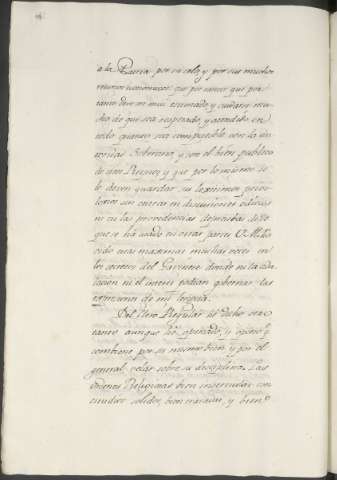 a la Patria por su celo, y por sus muchos
recursos economicos: que por tanto que por
tanto deve ser mui estimado, y cuidarse mu-
cho de que sea respetado, y atendido en
todo quanto sea compatible con la
Soberana, y con el bien publico
de estos Reynos y que por lo mismo se
le deven guardar sus lexitimos privi-
lexios sin entrar en discusiones odiosas
ni en las providencias de q.e
que se ha usado en otras partes. V. M. ha
oido estas maximas muchas veces en
los secretos del Gavinete donde ni la adu-
lacion ni el interes podian governar las
expresiones de mi lengua.
Del Clero Regular he dicho otro
tanto aunque he opinado, y opino q.e
combiene por su mismo bien y por el
general, velar sobre su disciplina. Las
Ordenes Religiosas bien instruidas con
estudios solidos, bien morales, y bien